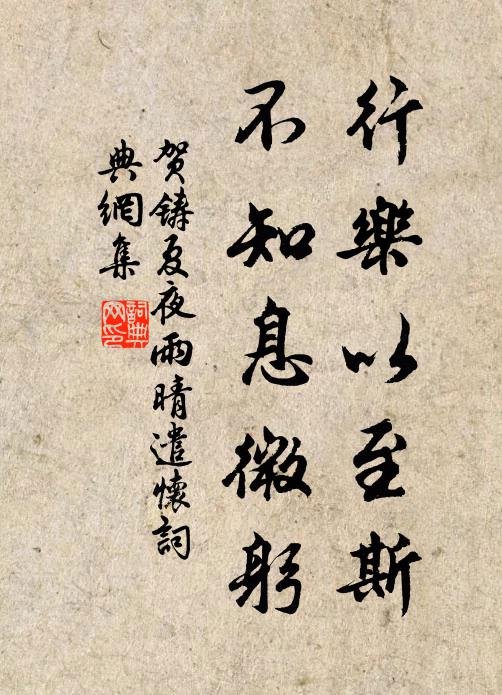 行樂以至斯
不知息微躬
贺鑄夏夜雨晴遣懷詞
典網集
詞典
网印